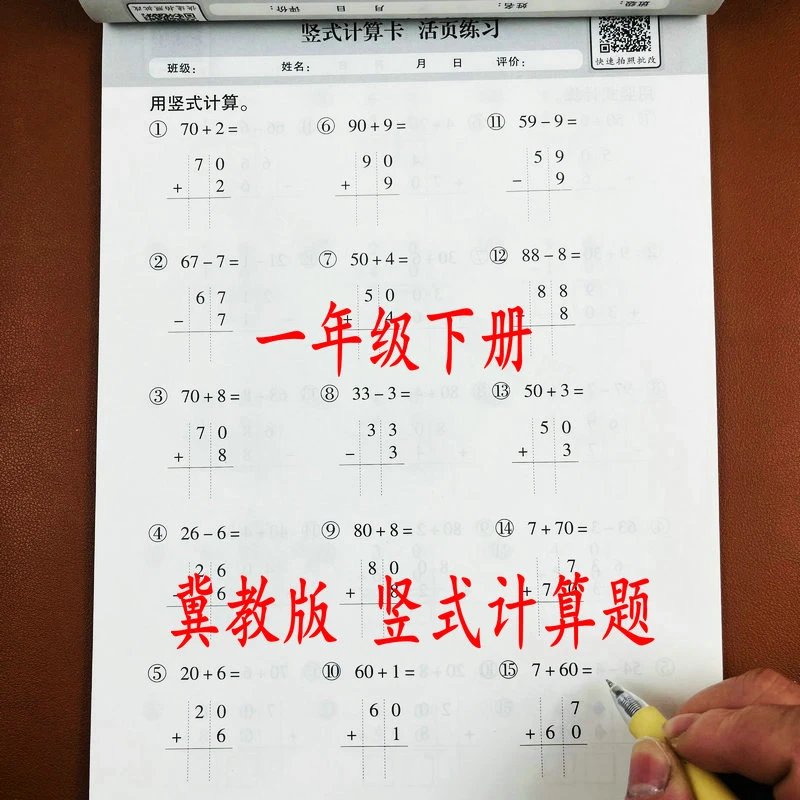 竖式计算卡 活页练习
快速拍照批改
班级： 姓名： 月 日 评价：
快速拍照批改
用竖式计算。
① 70+2=
7 0
+ 2
⑥ 90+9=
9 0
+ 9
⑪ 59-9=
5 9
- 9
② 67-7=
6 7
- 7
⑦ 50+4=
5 0
+ 4
⑫ 88-8=
8 8
- 8
一年级下册
③ 70+8=
7 0
+ 8
⑧ 33-3=
3 3
- 3
⑬ 50+3=
5 0
+ 3
④ 26-6=
2 6
- 6
⑨ 80+8=
8 0
+ 8
⑭ 7+70=
7
+ 7 0
冀教版 竖式计算题
⑤ 20+6=
2 0
+ 6
⑩ 60+1=
6 0
+ 1
⑮ 7+60=
7
+ 6 0